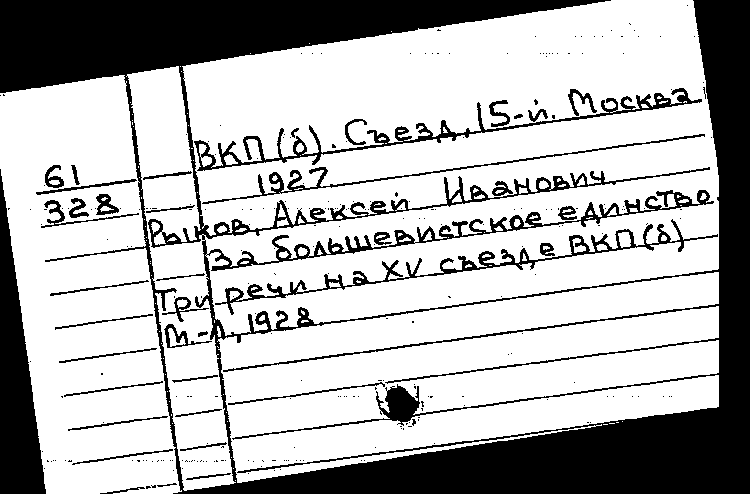 ВКП(б). Съезд, 15-й. Москва
61
1927.
328
Рыков, Алексей Иванович.
За большевистское единство.
Три речи на XV съезде ВКП(б)
М.-Л., 1928.